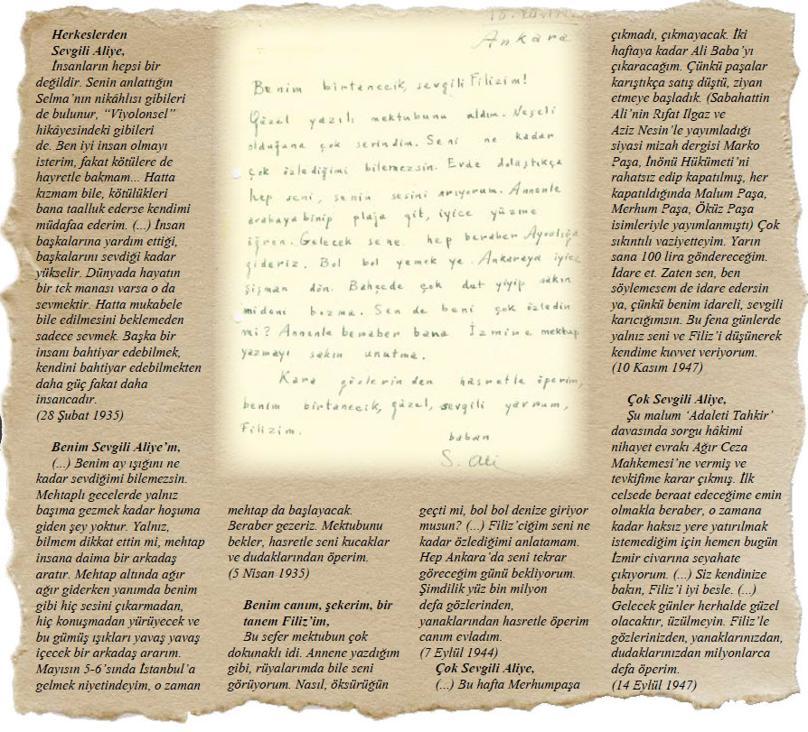 Herkeslerden
Sevgili Aliye,
İnsanların hepsi bir
değildir. Senin anlattığın
Selma'nın nikâhlısı gibileri
de bulunur, “Viyolonsel”
hikâyesindeki gibileri
de. Ben iyi insan olmayı
isterim, fakat kötülere de
hayretle bakmam... Hatta
kızmam bile, kötülükleri
bana taalluk ederse kendimi
müdafaa ederim. (...) İnsan
başkalarına yardım ettiği,
başkalarını sevdiği kadar
yükselir. Dünyada hayatın
bir tek manası varsa o da
sevmektir. Hatta mukabele
bile edilmesini beklemeden
sadece sevmek. Başka bir
insanı bahtiyar edebilmek,
kendini bahtiyar edebilmekten
daha güç fakat daha
insancadır.
(28 Şubat 1935)
Benim Sevgili Aliye'm,
(...) Benim ay ışığını ne
kadar sevdiğimi bilemezsin.
Mehtaplı gecelerde yalnız
başıma gezmek kadar hoşuma
giden şey yoktur. Yalnız,
bilmem dikkat ettin mi, mehtap
insana daima bir arkadaş
aratır. Mehtap altında ağır
ağır giderken yanımda benim
gibi hiç sesini çıkarmadan,
hiç konuşmadan yürüyecek ve
bu gümüş ışıkları yavaş yavaş
içecek bir arkadaş ararım.
Mayısın 5-6'sında İstanbul'a
gelmek niyetindeyim, o zaman
Ankara
Benim birtanecik, sevgili Filizim!
Güzel yazılı mektubunu aldım. Neşeli
olduğuna çok sevindim. Seni ne kadar
çok özlediğimi bilemezsin. Evde dolaştıkça
hep seni, senin sesini arıyorum. Annenle
arabaya binip plaja git, iyice yüzme
öğren. Gelecek sene hep beraber Ayvalığa
gideriz. Bol bol yemek ye. Ankaraya iyice
şişman dön. Bahçede çok dut yiyip sakın
mideni bozma. Sen de beni çok özledin
mi? Annenle beraber bana İzmire mektup
yazmayı sakın unutma.
Kara gözlerinden hasretle öperim,
benim birtanecik, güzel, sevgili yavrum,
Filizim.
baban
S. Ali
mehtap da başlayacak.
Beraber gezeriz. Mektubunu
bekler, hasretle seni kucaklar
ve dudaklarından öperim.
(5 Nisan 1935)
Benim canım, şekerim, bir
tanem Filiz'im,
Bu sefer mektubun çok
dokunaklı idi. Annene yazdığım
gibi, rüyalarımda bile seni
görüyorum. Nasıl, öksürüğün
geçti mi, bol bol denize giriyor
musun? (...) Filiz'ciğim seni ne
kadar özlediğimi anlatamam.
Hep Ankara'da seni tekrar
göreceğim günü bekliyorum.
Şimdilik yüz bin milyon
defa gözlerinden,
yanaklarından hasretle öperim
canım evladım.
(7 Eylül 1944)
Çok Sevgili Aliye,
(...) Bu hafta Merhumpaşa
çıkmadı, çıkmayacak. İki
haftaya kadar Ali Baba'yı
çıkaracağım. Çünkü paşalar
karıştıkça satış düştü, ziyan
etmeye başladık. (Sabahattin
Ali'nin Rıfat Ilgaz ve
Aziz Nesin'le yayımladığı
siyasi mizah dergisi Marko
Paşa, İnönü Hükümeti'ni
rahatsız edip kapatılmış, her
kapatıldığında Malum Paşa,
Merhum Paşa, Öküz Paşa
isimleriyle yayımlanmıştı) Çok
sıkıntılı vaziyetteyim. Yarın
sana 100 lira göndereceğim.
İdare et. Zaten sen, ben
söylemesem de idare edersin
ya, çünkü benim idareli, sevgili
karıcığımsın. Bu fena günlerde
yalnız seni ve Filiz'i düşünerek
kendime kuvvet veriyorum.
(10 Kasım 1947)
Çok Sevgili Aliye,
Şu malum ‘Adaleti Tahkir’
davasında sorgu hâkimi
nihayet evrakı Ağır Ceza
Mahkemesi'ne vermiş ve
tevkifime karar çıkmış. İlk
celsede beraat edeceğime emin
olmakla beraber, o zamana
kadar haksız yere yatırılmak
istemediğim için hemen bugün
İzmir civarına seyahate
çıkıyorum. (...) Siz kendinize
bakın, Filiz'i iyi besle. (...)
Gelecek günler herhalde güzel
olacaktır, üzülmeyin. Filiz'le
gözlerinizden, yanaklarınızdan,
dudaklarınızdan milyonlarca
defa öperim.
(14 Eylül 1947)